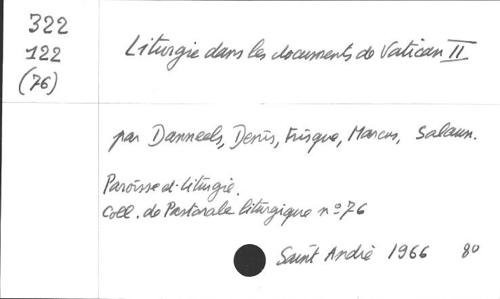 322
122
(76)
Liturgie dans les documents de Vatican II
par Danneels, Denis, Frisque, Marcus, Salaun.
Paroisse et Liturgie.
Coll. de Pastorale liturgique nº 76
Saint André 1966 80